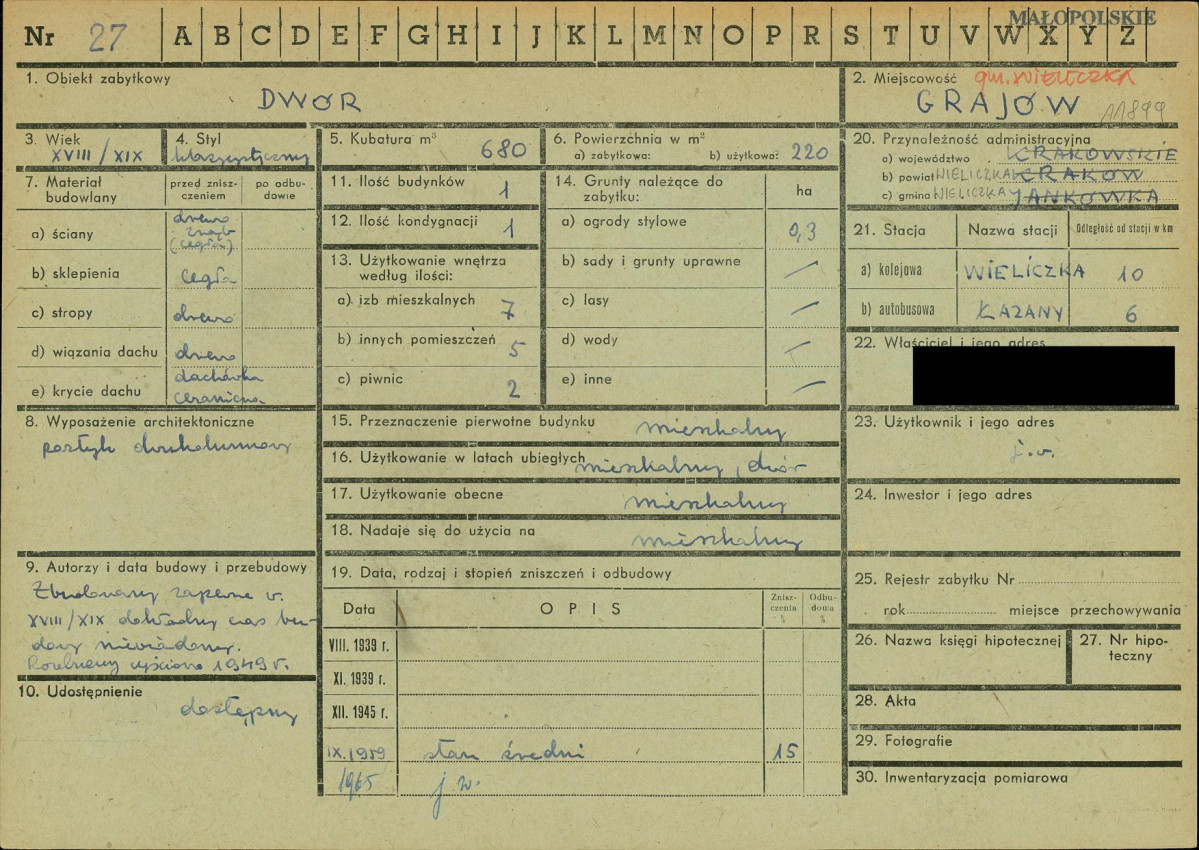 MAŁOPOLSKIE
Nr 27 A B C D E F G H I J K L M N O P R S T U V W X Y Z
1. Obiekt zabytkowy
DWÓR
2. Miejscowość gm. WIELICZKA
GRAJÓW 11899
3. Wiek
XVIII/XIX
4. Styl
klasycystyczny
5. Kubatura m³
680
6. Powierzchnia w m²
a) zabytkowa: b) użytkowa: 220
7. Materiał budowlany
przed zniszczeniem
po odbudowie
a) ściany
drewno
(cegła)
b) sklepienia cegła
c) stropy drewno
d) wiązania dachu drewno
e) krycie dachu
dachówka
ceramiczna
8. Wyposażenie architektoniczne
portyk dwukolumnowy
9. Autorzy i data budowy i przebudowy
Zbudowany zapewne w.
XVIII/XIX dokładny czas bu-
dowy niewiadomy.
Rozebrany częściowo 1949 r.
10. Udostępnienie
dostępny
11. Ilość budynków 1
12. Ilość kondygnacji 1
13. Użytkowanie wnętrza
według ilości:
a) izb mieszkalnych 7
b) innych pomieszczeń 5
c) piwnic 2
14. Grunty należące do
zabytku:
ha
a) ogrody stylowe 0,3
b) sady i grunty uprawne —
c) lasy —
d) wody —
e) inne —
15. Przeznaczenie pierwotne budynku mieszkalny
16. Użytkowanie w latach ubiegłych mieszkalny, dwór
17. Użytkowanie obecne mieszkalny
18. Nadaje się do użycia na mieszkalny
19. Data, rodzaj i stopień zniszczeń i odbudowy
Data OPIS Zniszczenia % Odbudowa %
VIII. 1939 r.
XI. 1939 r.
XII. 1945 r.
IX. 1959 stan średni 15
1965 j. w.
20. Przynależność administracyjna
a) województwo KRAKOWSKIE
b) powiat WIELICZKA KRAKÓW
c) gmina WIELICZKA JANKÓWKA
21. Stacja Nazwa stacji Odległość od stacji w km
a) kolejowa WIELICZKA 10
b) autobusowa ŁAZANY 6
22. Właściciel i jego adres
23. Użytkownik i jego adres
j. w.
24. Inwestor i jego adres
25. Rejestr zabytku Nr
rok miejsce przechowywania
26. Nazwa księgi hipotecznej
27. Nr hipo-
teczny
28. Akta
29. Fotografie
30. Inwentaryzacja pomiarowa